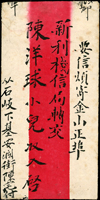 要信煩寄金山正埠
新利棧信局轉交
陳洋球小兒收入啓
从石岐下基安瀾街陳